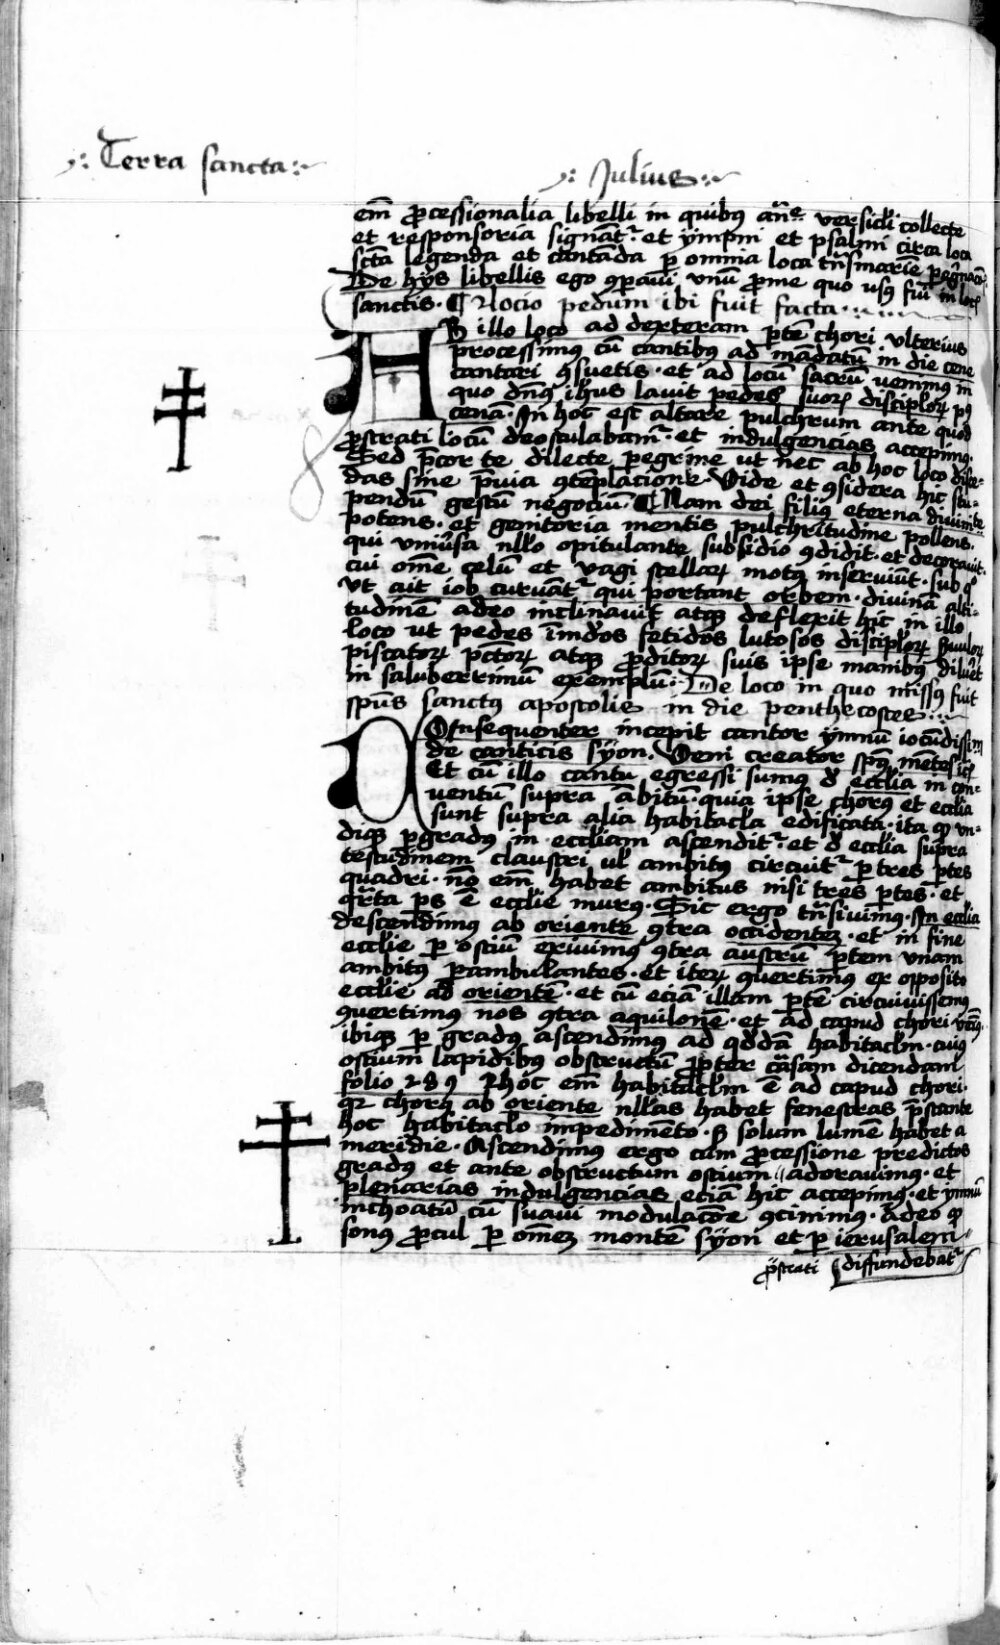 Terra sancta
Julius
em̄ ꝓcessionalia libelli in quibꝯ an̄e versicl̄i collecte
et responsoria signāt᷑ et ympni et psalmi circa loca
sctā legenda et cantāda ꝑ omnia loca
De hijs libellis ego ꝯparaui vnū ꝓme quo usꝯ fui in locꝭ
sanctis · ¶ Locio pedum ibi fuit facta
AB illo loco ad dexteram ꝑtē chori vlterius
processimꝯ cū cantibꝯ ad mādatū in die cene
cantari ꝯsuetis · et ad locū sacrū venimꝯ in
quo dn̄s ihūs lauit pedes suoꝝ discipl̄oꝝ pꝯ
cenā · In hoc est altare pulchrum ante quod
ꝓstrati locū deosculabam᷑ · et indulgencias accepimꝯ
Sed p̄cor te dilecte peregrine ut nec ab hoc loco disce-
das sine p̄uia ꝯtēplacione · Vide et ꝯsidera hic stu-
pendū gestū negociū ¶ Nam dei filiꝯ eterna diuinite
potens · et genitoria mentis pulchritudine pollens ·
qui vniūsa nl̄lo opitulante subsidio ꝯdidit · et decorauit
cui om̄e celū et vagi stellaꝝ motꝯ inseruiūt · sub qͦ
vt ait iob curuāt᷑ qui portant orbem · diuinā alti-
tudinē adeo inclinauit atqꝫ deflexit hic in illo
loco ut pedes īmūdos fetidos lutosos discipl̄oꝝ
piscatoꝝ pctōꝝ atqꝫ ꝓditoꝝ suis ipse manibꝯ diluēt
in saluberrimū exemplū · De loco in quo missꝯ fuit
spūs sanctꝯ apostolis in die penthecostes
COnsequenter incepit cantor ymnū iocūdissim
de canticis syon · Veni creator spūs mētes
Et cū illo cantu egressi sumꝯ d̄ eccl̄ia in con-
ventū supra ābitū · quia ipse chorꝯ et eccl̄ia
sunt supra alia habitacl̄a edificata · ita ꝙ vn-
diqꝫ ꝑ gradꝯ in eccl̄iam ascendit᷑ · et d̄ eccl̄ia supra
testudinem claustri ul̄ ambitꝯ circuit᷑ ꝑ tres ꝑtes
quadri · nō em̄ habet ambitus nisi tres ꝑtes · et
qͣrta ps ē eccl̄ie murꝯ · Sic ergo tn̄siuimꝯ · In eccl̄ia
descendimꝯ ab oriente ꝯtra occidentez · et in fine
eccl̄ie ꝑ ostiū exiuimꝯ ꝯtra austrū ꝑtem vnam
ambitꝯ ꝑambulantes · et iteꝝ ꝯuertimꝯ ex opposito
eccl̄ie ad orientē · et cū eciā illam ꝑtē circuiuissemꝯ
ꝯuertimꝯ nos ꝯtra aquilonē · et ad capud chori
ibiqꝫ ꝑ gradꝯ ascendimꝯ ad qd̄dā habitacl̄m · cuiꝯ
ostium lapidibꝯ obstructū ꝓpter cāsam dicendam
folio 289 · hoc em̄ habitacl̄m ē ad capud chori ·
qꝛ chorꝯ ab oriente nl̄las habet fenestras p̄stante
hoc habitacl̄o impedimēto · ꝫ solum lumē habet a
meridie · Ascendimꝯ ergo cum ꝓcessione predictos
gradꝯ et ante obstructum ostium adorauimꝯ · et
plenarias indulgencias eciā hic accepimꝯ · et ymnū
inchoatū cū suaui modulacōe ꝯcinimꝯ · Adeo ꝙ
sonꝯ ꝓcul ꝑ om̄ez montē syon et ꝑ ierusalem
ꝓstrati diffundebat᷑